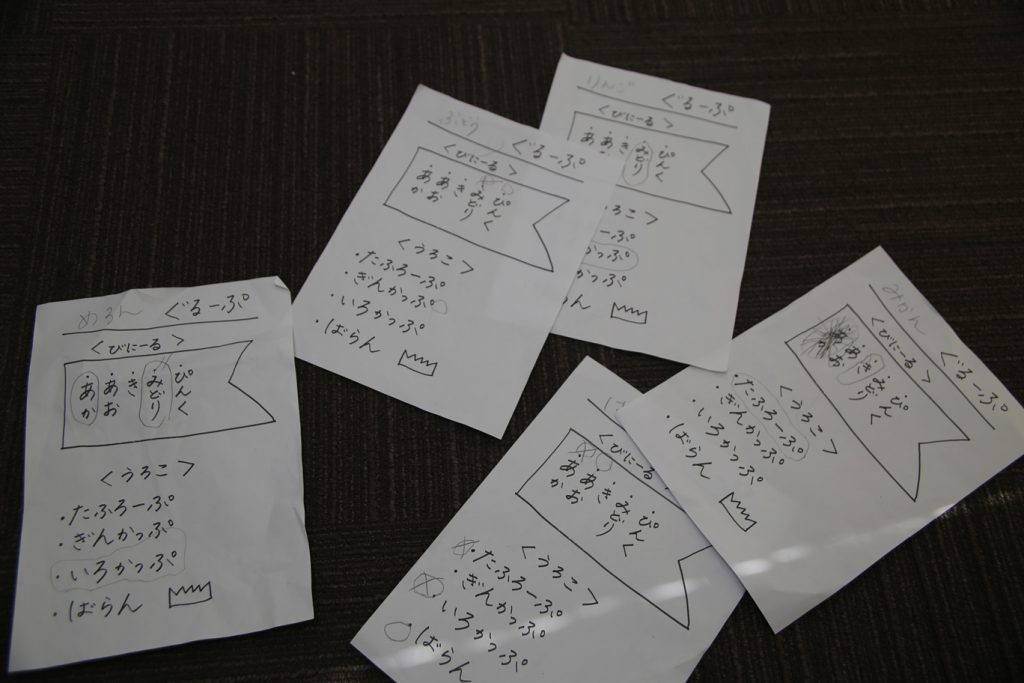 めろん ぐるーぷ
<びにーる>
・あか
・あお
・き
・みどり
・ぴんく
<うろこ>
・たふろーぷ
・ぎんかっぷ
・いろかっぷ
・ばらん
ぶどう ぐるーぷ
<びにーる>
・あか
・あお
・き
・みどり
・ぴんく
<うろこ>
・たふろーぷ
・ぎんかっぷ
・いろかっぷ
・ばらん
りんご ぐるーぷ
<びにーる>
・あ
・あ
・き
・みどり
・ぴんく
ろこ>
ーぷ
かっぷ
かっぷ
らん
みかん ぐるーぷ
<びにーる>
・あお
・き
・みどり
・ぴんく
<うろこ>
・たふろーぷ
・ぎんかっぷ
・いろかっぷ
・ばらん
<びにーる
・あか
・あお
・き
・みどり
・ぴんく
<うろこ>
・たふろーぷ
・ぎんかっぷ
・いろかっぷ
・ばらん